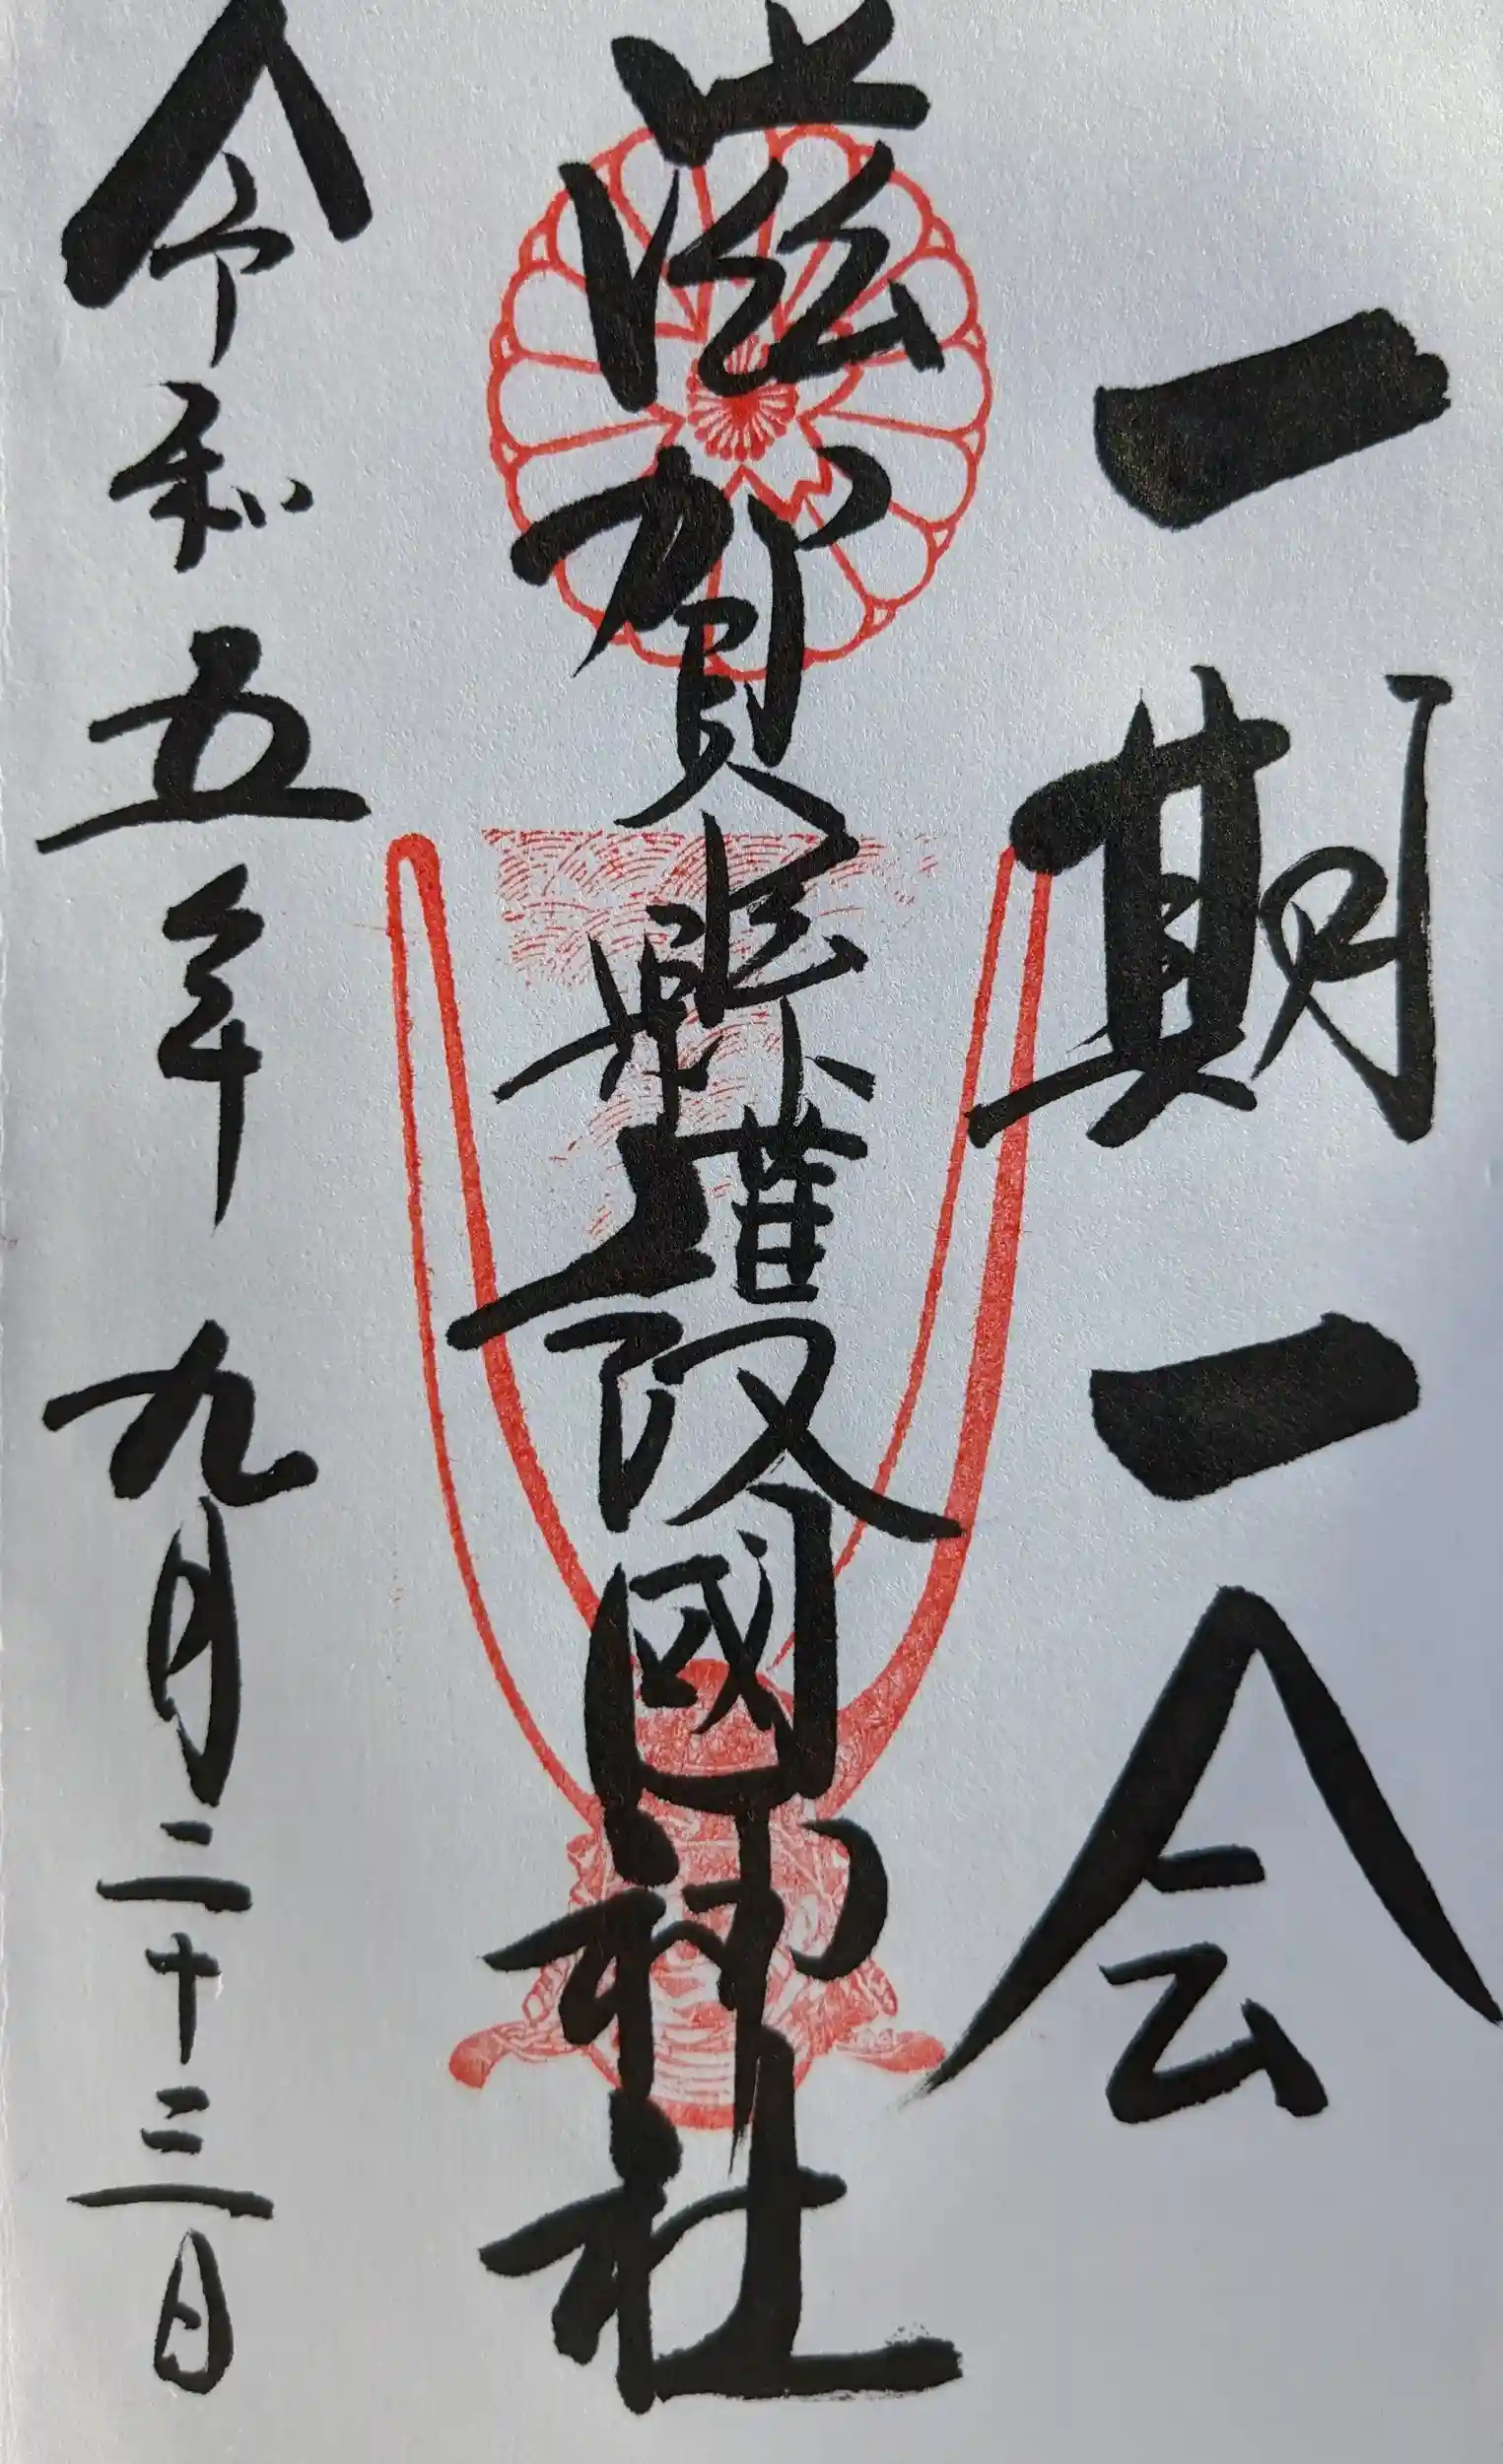 一期一会
滋賀縣護國神社
令和五年九月二十三日